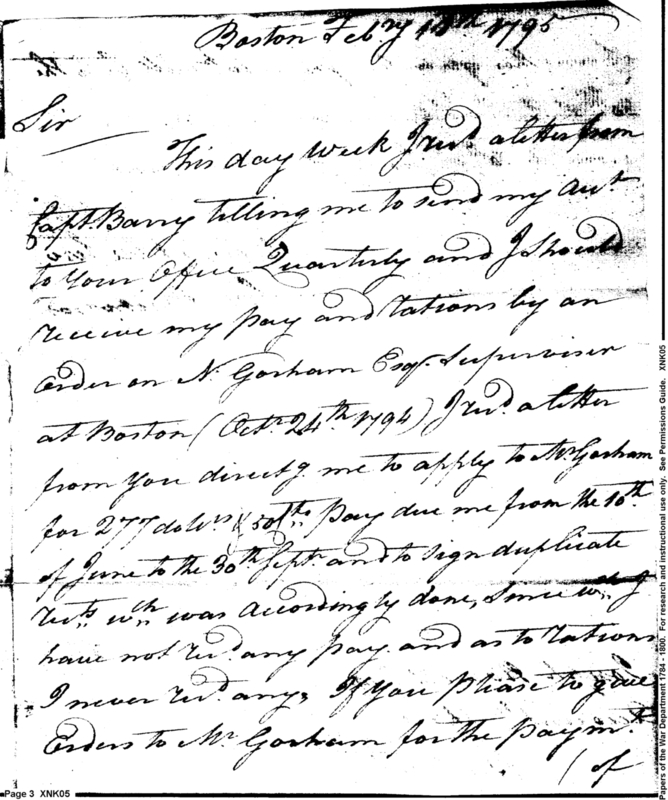 Boston Feby 14th 1795
Sir
This day week I recd a letter from
Capt. Barry telling me to send my Act
to Your Office Quarterly and I should
receive my pay and rations by an
Order on N. Gorham Esqr. Superviser
at Boston (Octr. 24th 1794) I recd a letter
from You directg. me to apply to Mr Gorham
for 277 dolrs & 50/ths pay due me from the 10th
of June to the 30th Sept. and to sign duplicate
rects wch was Accordingly done, Since wch I
have not recd any pay and as to rations
I never recd any, If You Please to give
Orders to Mr Gorham for the paymt
(of
Page 3 XNK05
Papers of the War Department 1784 - 1800. For research and instructional use only. See Permissions Guide. XNK05